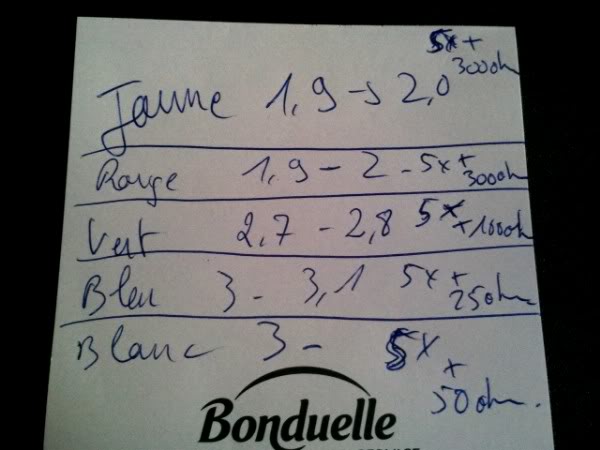 Jaune 1,9 → 2,0 5x + 300ohm
Rouge 1,9 - 2 - 5x + 300ohm
Vert 2,7 - 2,8 5x + 100ohm
Bleu 3 - 3,1 5x + 25ohm
Blanc 3 - 5x + 50ohm.
Bonduelle